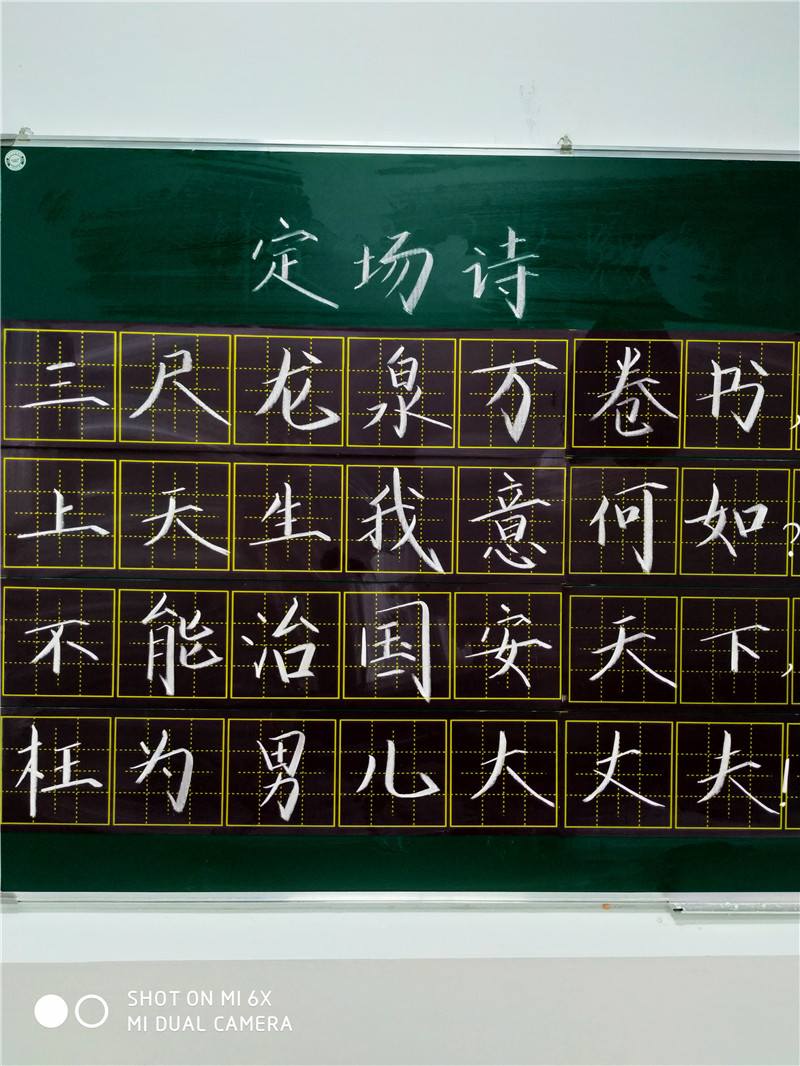 定场诗
三尺龙泉万卷书,
上天生我意何如?
不能治国安天下,
枉为男儿大丈夫!
SHOT ON MI 6X
MI DUAL CAMERA